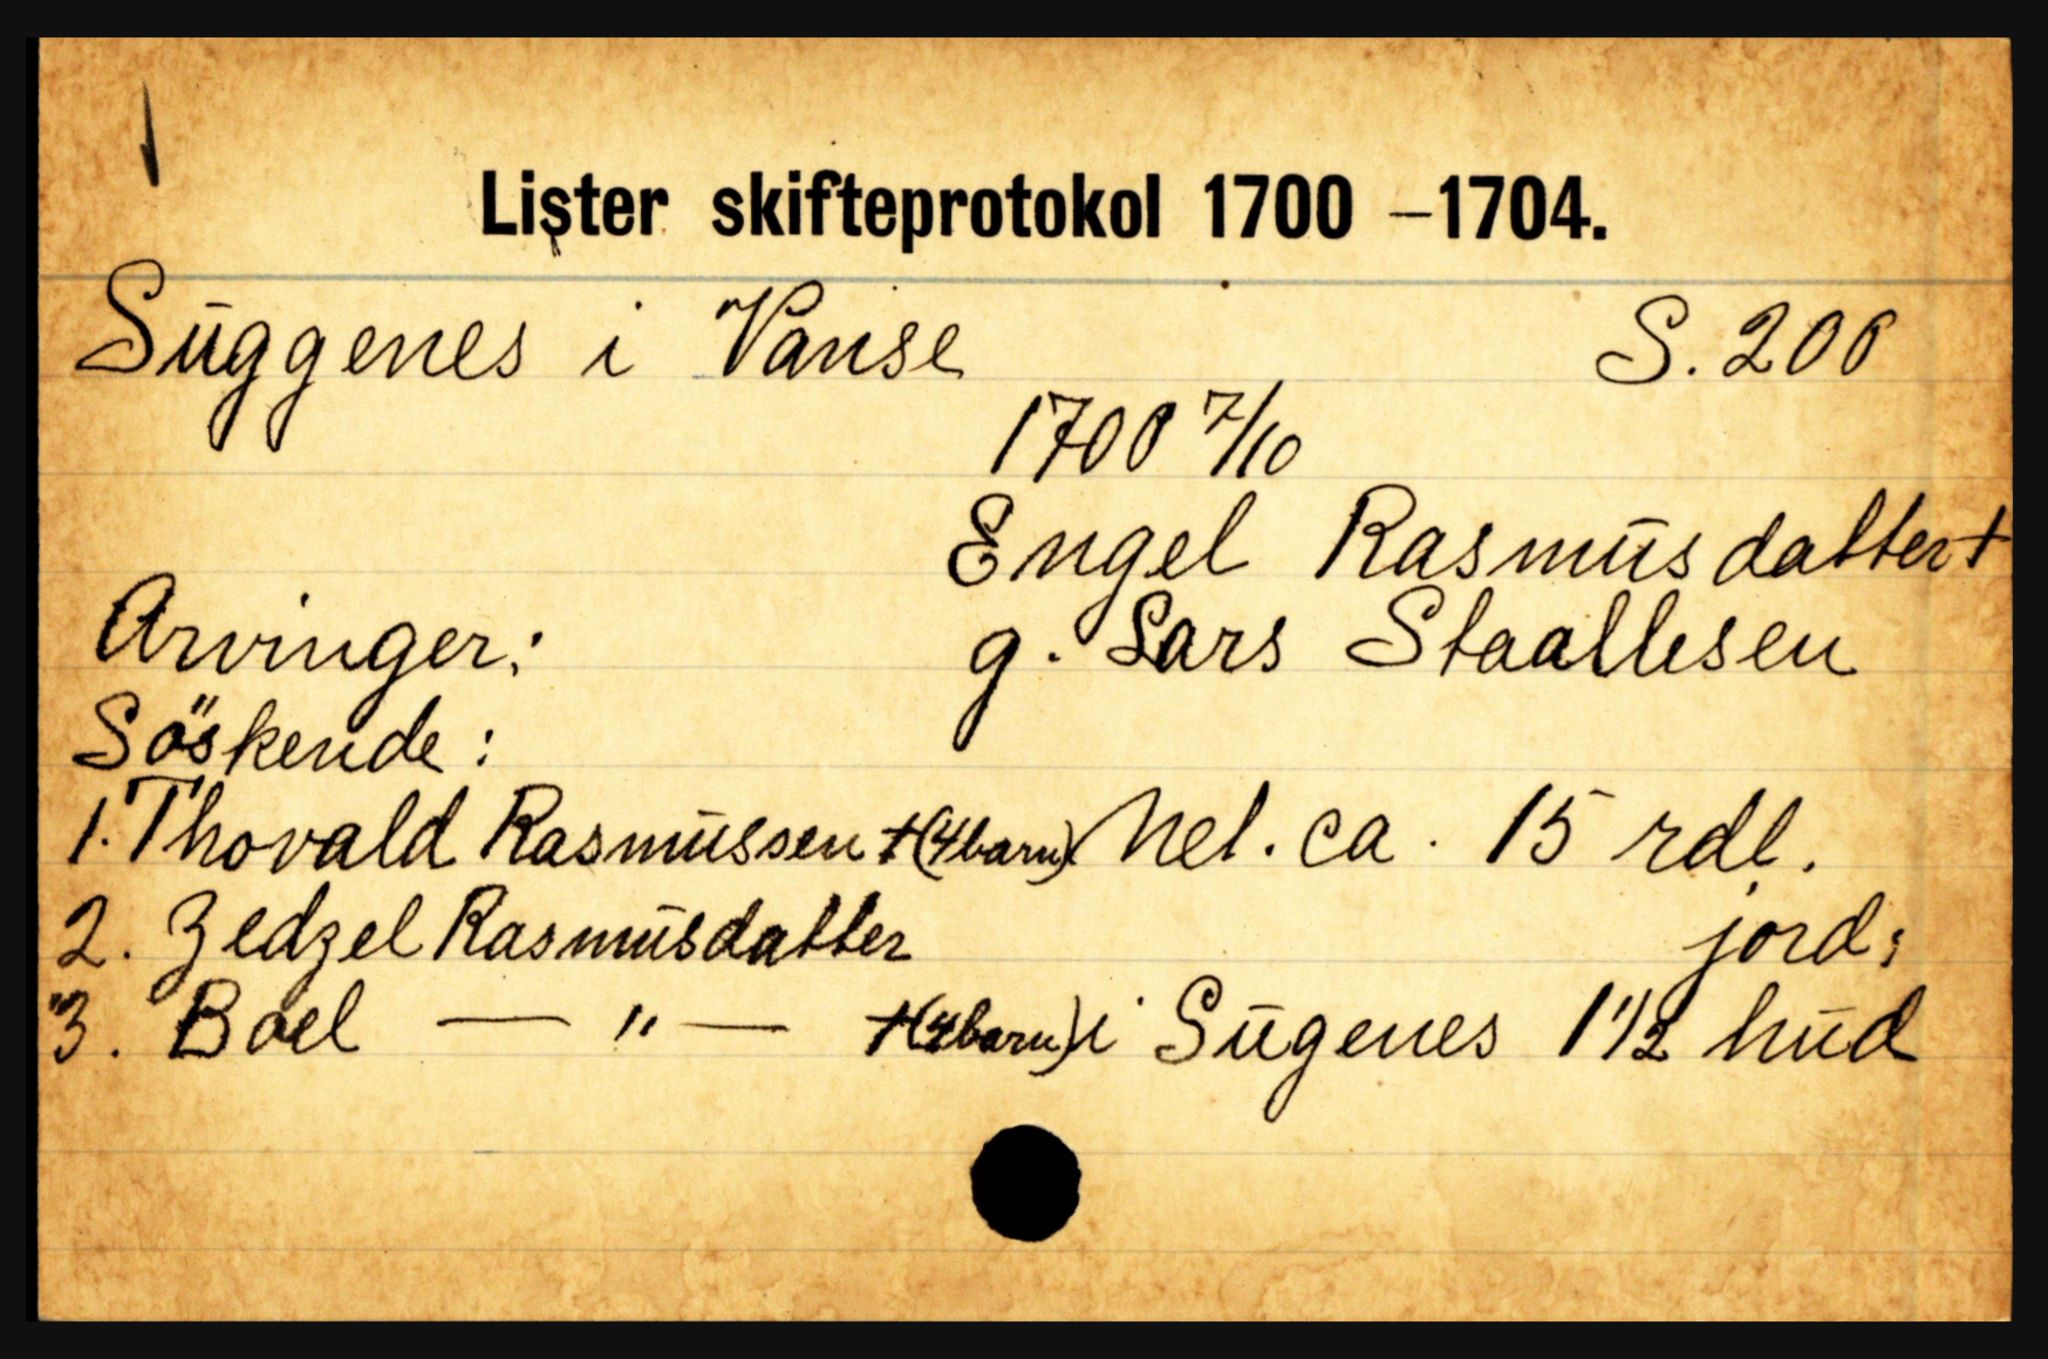 Lister skifteprotokol 1700 – 1704.
Sūggenes i Vanse S. 200
1700 7/10
Engel Rasmūsdatter +
Arvinger: g. Lars Staallesen
Söskende:
1. Thovald Rasmūssen + (4 barn) Nel. ca. 15 rdl.
2. Zedzel Rasmūsdatter jord:
3. Boel — " — + (4 barn) i Sūgenes 1 1/2 hūd